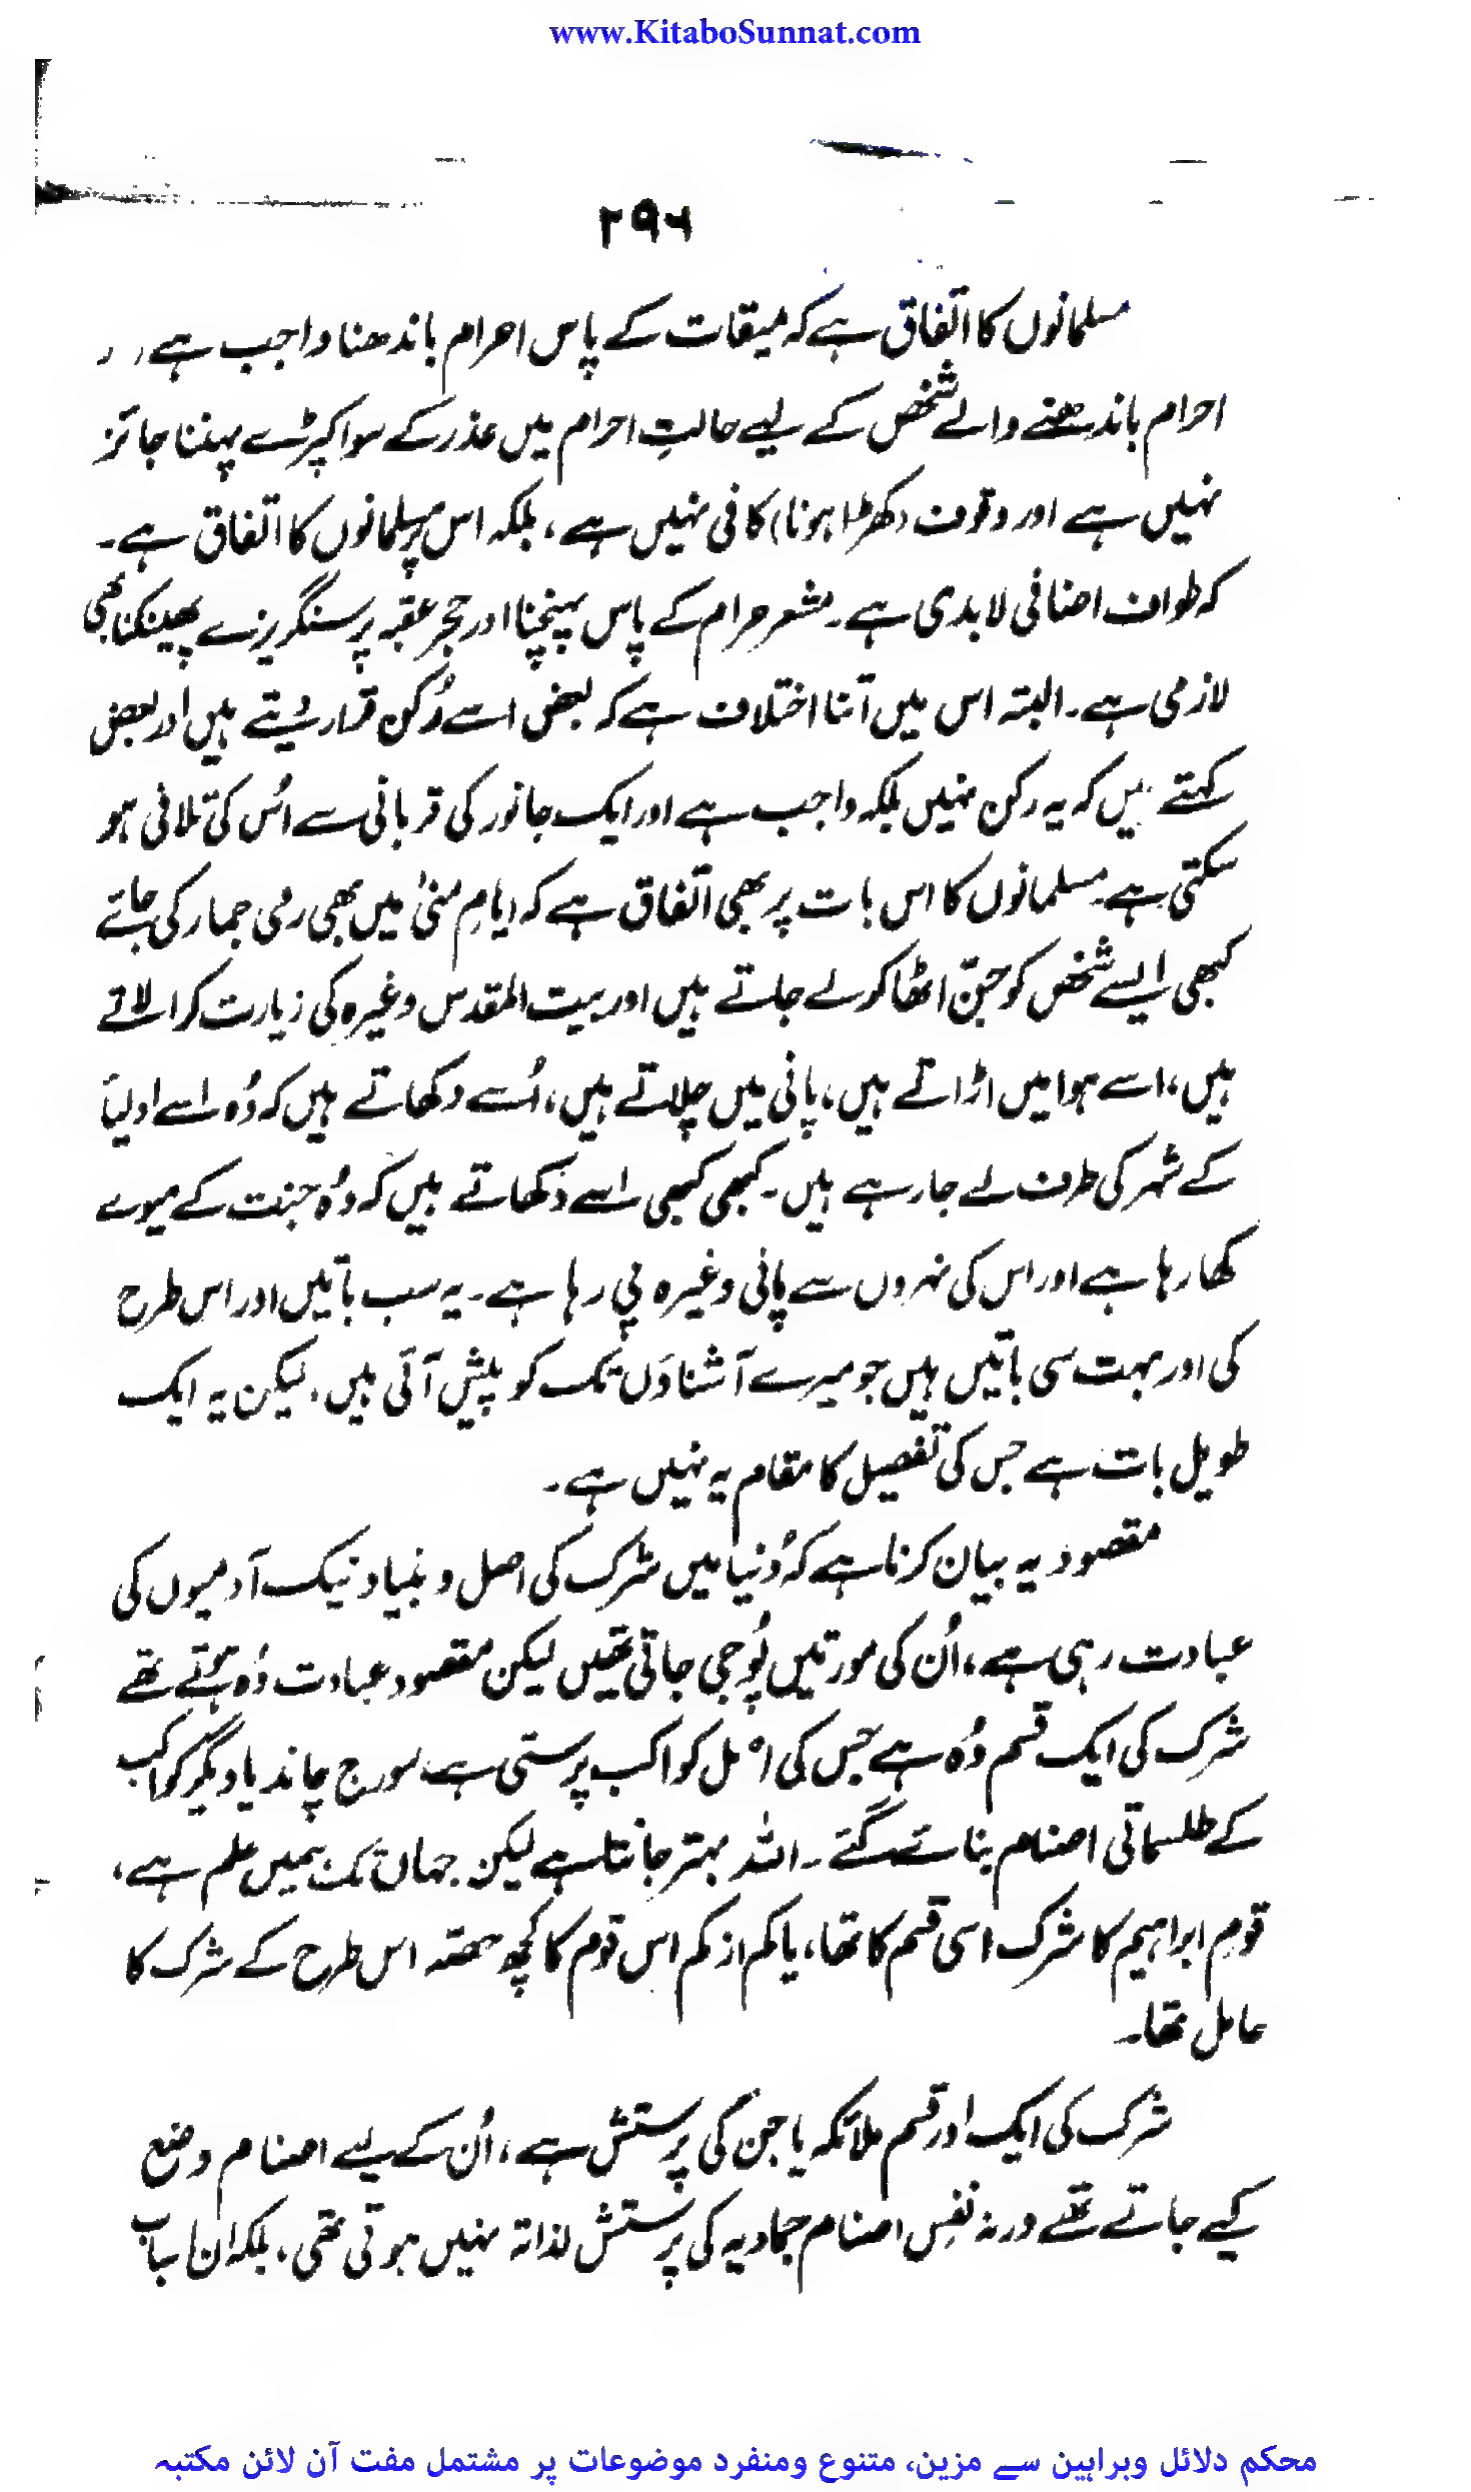 www.KitaboSunnat.com
۲۹۶
مسلمانوں کا اتفاق ہے کہ میقات کے پاس احرام باندھنا واجب ہے،
احرام باندھنے والے شخص کے لیے حالتِ احرام میں عذر کے سوا کپڑے پہننا جائز
نہیں ہے اور وقوف (کھڑا ہونا) کافی نہیں ہے، بلکہ اس پر مسلمانوں کا اتفاق ہے۔
کہ طواف اضافی لابدی ہے۔ مشعر حرام کے پاس پہنچنا اور حجر عقبہ پر سنگریزے پھینکنا بھی
لازمی ہے۔ البتہ اس میں اتنا اختلاف ہے کہ بعض اسے رُکن قرار دیتے ہیں اور بعض
کہتے ہیں کہ یہ رکن نہیں بلکہ واجب ہے اور ایک جانور کی قربانی سے اُس کی تلافی ہو
سکتی ہے۔ مسلمانوں کا اس بات پر بھی اتفاق ہے کہ ایامِ منیٰ میں بھی رمی جمار کی جائے
کبھی ایسے شخص کو جنّ اٹھا کر لے جاتے ہیں اور بیت المقدس وغیرہ کی زیارت کرا لاتے
ہیں، اسے ہوا میں اڑاتے ہیں، پانی میں چلاتے ہیں، اُسے دکھاتے ہیں کہ وُہ اسے اولیاء
کے شہر کی طرف لے جا رہے ہیں۔ کبھی کبھی اسے دکھاتے ہیں کہ وُہ جنت کے میوے
کھا رہا ہے اور اس کی نہروں سے پانی وغیرہ پی رہا ہے۔ یہ سب باتیں اور اس طرح
کی اور بہت سی باتیں ہیں جو میرے آشناؤں تک کو پیش آئی ہیں، لیکن یہ ایک
طویل بات ہے جس کی تفصیل کا مقام یہ نہیں ہے۔
مقصود یہ بیان کرنا ہے کہ دُنیا میں شرک کی اصل و بنیاد نیک آدمیوں کی
عبادت رہی ہے، اُن کی مورتیں پُوجی جاتی تھیں لیکن مقصود عبادت وُہ ہوتے تھے
شرک کی ایک قسم وُہ ہے جس کی اصل کواکب پرستی ہے سورج چاند یا دیگر کواکب
کے طلسماتی اصنام بنائے گئے۔ اللہ بہتر جانتا ہے لیکن جہاں تک ہمیں علم ہے،
قومِ ابراہیم کا شرک اسی قسم کا تھا، یا کم از کم اس قوم کا کچھ حصّہ اس طرح کے شرک کا
عامل تھا۔
شرک کی ایک اور قسم ملائکہ یا جن کی پرستش ہے، اُن کے لیے اصنام وضع
کیے جاتے تھے ورنہ نفسِ اصنام جمادیہ کی پرستش لذاتہ نہیں ہوتی تھی، بلکہ ان اسباب
محکم دلائل وبراہین سے مزین، متنوع ومنفرد موضوعات پر مشتمل مفت آن لائن مکتبہ